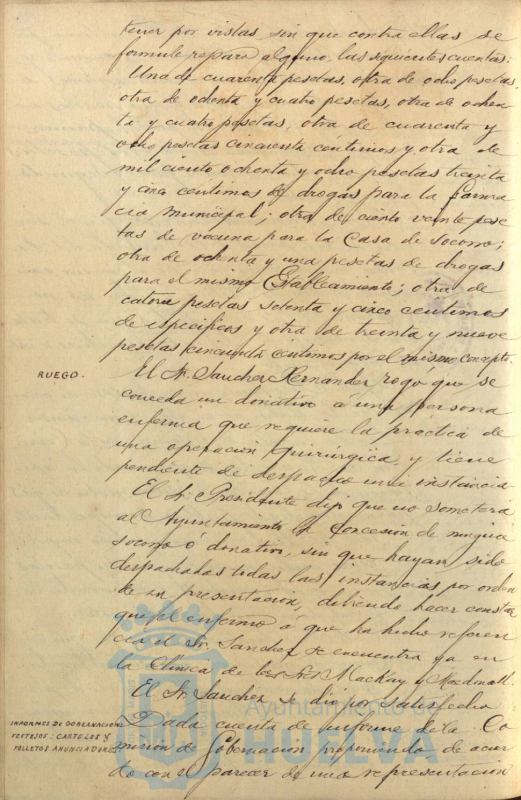 tener por vistas, sin que contra ellas se
formule reparo alguno, las siguientes cuentas:
Una de cuarenta pesetas, otra de ocho pesetas,
otra de ochenta y cuatro pesetas, otra de ochen
ta y cuatro pesetas, otra de cuarenta y
ocho pesetas cincuenta céntimos y otra de
mil ciento ochenta y ocho pesetas treinta
y cinco centimos de drogas para la farma
cia municipal; otra de ciento veinte pese
tas de vacuna para la Casa de Socorro;
otra de ochenta y una pesetas de drogas
para el mismo Establecimiento; otra de
catorce pesetas setenta y cinco centimos
de especificos y otra de treinta y nueve
pesetas cincuenta centimos por el mismo concepto.
RUEGO.
El Sr. Sanchez Hernandez rogo que se
conceda un donativo á una persona
enferma que requiere la practica de
una operación quirúrgica, y tiene
pendiente de despacho una instancia
El Sr. Presidente dijo que no sometera
al Ayuntamiento la concesión de ningun
socorro ó donativo, sin que hayan sido
despachadas todas las instancias por orden
de su presentación, debiendo hacer constar
que el enfermo á que ha hecho referen
cia el Sr. Sanchez se encuentra ya en
la Clínica de los Sres MacKay y Macdonall.
El Sr. Sanchez se dio por satisfecho
INFORMES DE GOBERNACION
FESTEJOS: CARTELES Y
FOLLETOS ANUNCIADORES
Dada cuenta de informe de la Co
misión de Gobernacion proponiendo de acuer
do con el parecer de una representación
Ayuntamiento de
HUELVA